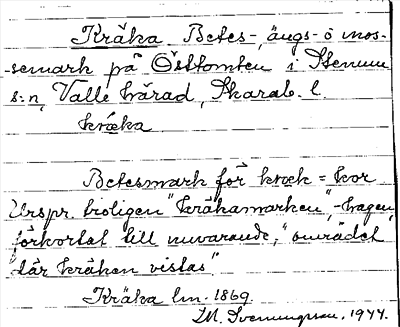 Kräka Betes-, ängs- o mos-
-semark på Östtomten i Stenum
s:n, Valle härad, Skarab. l.
kræka
Betesmark för kræk = kor
Urspr. troligen "kräkamarken", -hagen,
förkortat till nuvarande, "området
där kräken vistas".
Kräka lm. 1869.
M. Svenungsson. 1944.